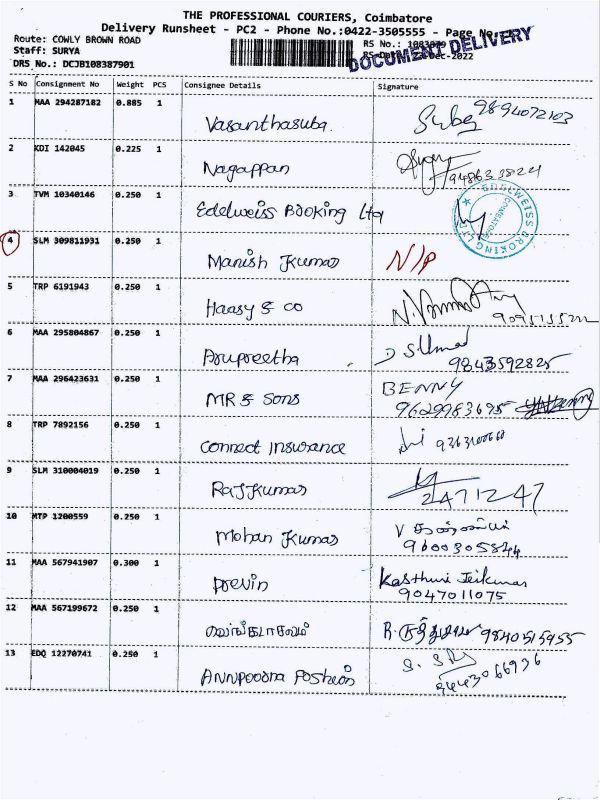 THE PROFESSIONAL COURIERS, Coimbatore
Delivery Runsheet - PC2 - Phone No.:0422-3505555 - Page No.
DOCUMENT DELIVERY
Route: COWLY BROWN ROAD
RS No.:
Staff: SURYA
RS Date: Dec-2022
DRS No.: DCJB108387901
S No Consignment No Weight PCS Consignee Details Signature
1 MAA 294287182 0.885 1 Vasanthasuba 9894072103
2 KDI 142045 0.225 1 Nagappan
3 TVM 10340146 0.250 1 Edelweiss Booking Ltd
EDELWEISS BROKING LTD COIMBATORE
4 SLM 309811931 0.250 1 Manish Kumar N/P
5 TRP 6191943 0.250 1 Haasy & co
6 MAA 295804867 0.250 1 Arupreetha 9843592825
7 MAA 296423631 0.250 1 MR & Sons BENNY
9629983695
8 TRP 7892156 0.250 1 Connect Insurance
9 SLM 310004019 0.250 1 Rajkumar 2471247
10 MTP 1200559 0.250 1 Mohan Kumar
9600305844
11 MAA 567941907 0.300 1 Previn Kasthuri Jeikumar
9047011075
12 MAA 567199672 0.250 1 வெங்கடாசலம் 9840515955
13 EDQ 12270741 0.250 1 Annpoorna